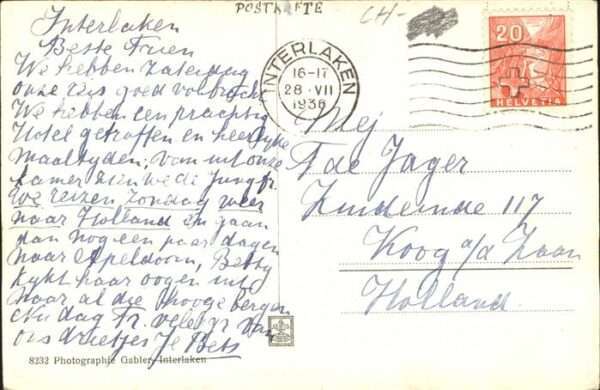 POSTKARTE
CH-
Interlaken
Beste Truen
We hebben Zaterdag
onze reis goed volbracht
We hebben een prachtig
Hotel getroffen en heerlyke
maaltyden, van uit onze
kamer zien we de Jungfr.
We reizen Zondag weer
naar Holland en gaan
dan nog een paar dagen
naar Apeldoorn, Betsy
kykt haar oogen uit
naar al die hooge bergen
Nu dag Tr. velegr van
ons drietjes Je Bets
8232 Photographie Gabler, Interlaken
INTERLAKEN
16-17
28 · VII
1936
20
HELVETIA
Mej
T de Jager
Zuideinde 117
Koog a/d Zaan
Holland